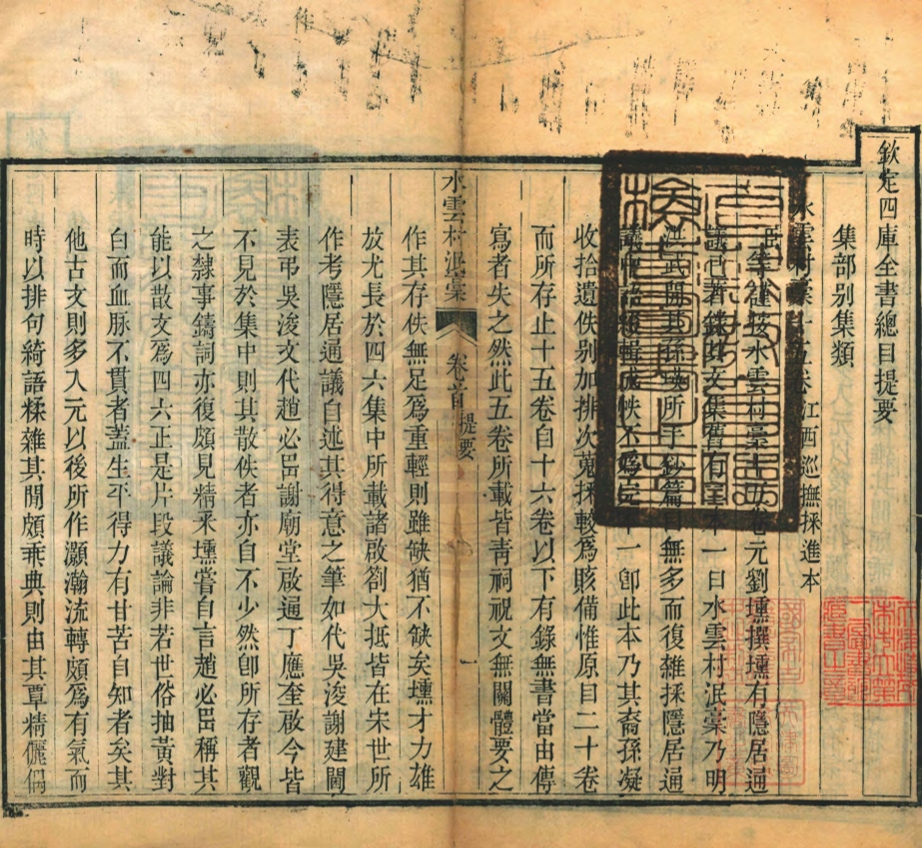 欽定四庫全書總目提要
集部别集類
水雲村藁十五卷江西巡撫採進本
臣等謹按水雲村藁十五卷元劉壎撰壎有隱居通
議已著錄其文集舊有二本一曰水雲村泯藁乃明
洪武間其孫瑛所手鈔篇目無多而復雜採隱居通
議中語綴輯成帙不爲定本一卽此本乃其裔孫凝
收拾遺佚别加排次蒐採較爲賅備惟原目二十卷
而所存止十五卷自十六卷以下有錄無書當由傳
寫者失之然此五卷所載皆靑祠祝文無關體要之
水雲村泯藁 卷首提要 一
作其存佚無足爲重輕則雖缺猶不缺矣壎才力雄
放尤長於四六集中所載諸啟劄大抵皆在宋世所
作考隱居通議自述其得意之筆如代吳浚謝建閫
表弔吳浚文代趙必岊謝廟堂啟通丁應奎啟今皆
不見於集中則其散佚者亦自不少然卽所存者觀
之隸事鑄詞亦復頗見精釆壎嘗自言趙必岊稱其
能以散文爲四六正是片段議論非若世俗抽黃對
白而血脉不貫者蓋生平得力有甘苦自知者矣其
他古文則多入元以後所作灝瀚流轉頗爲有氣而
時以排句綺語糅雜其間頗乘典則由其覃精儷偶